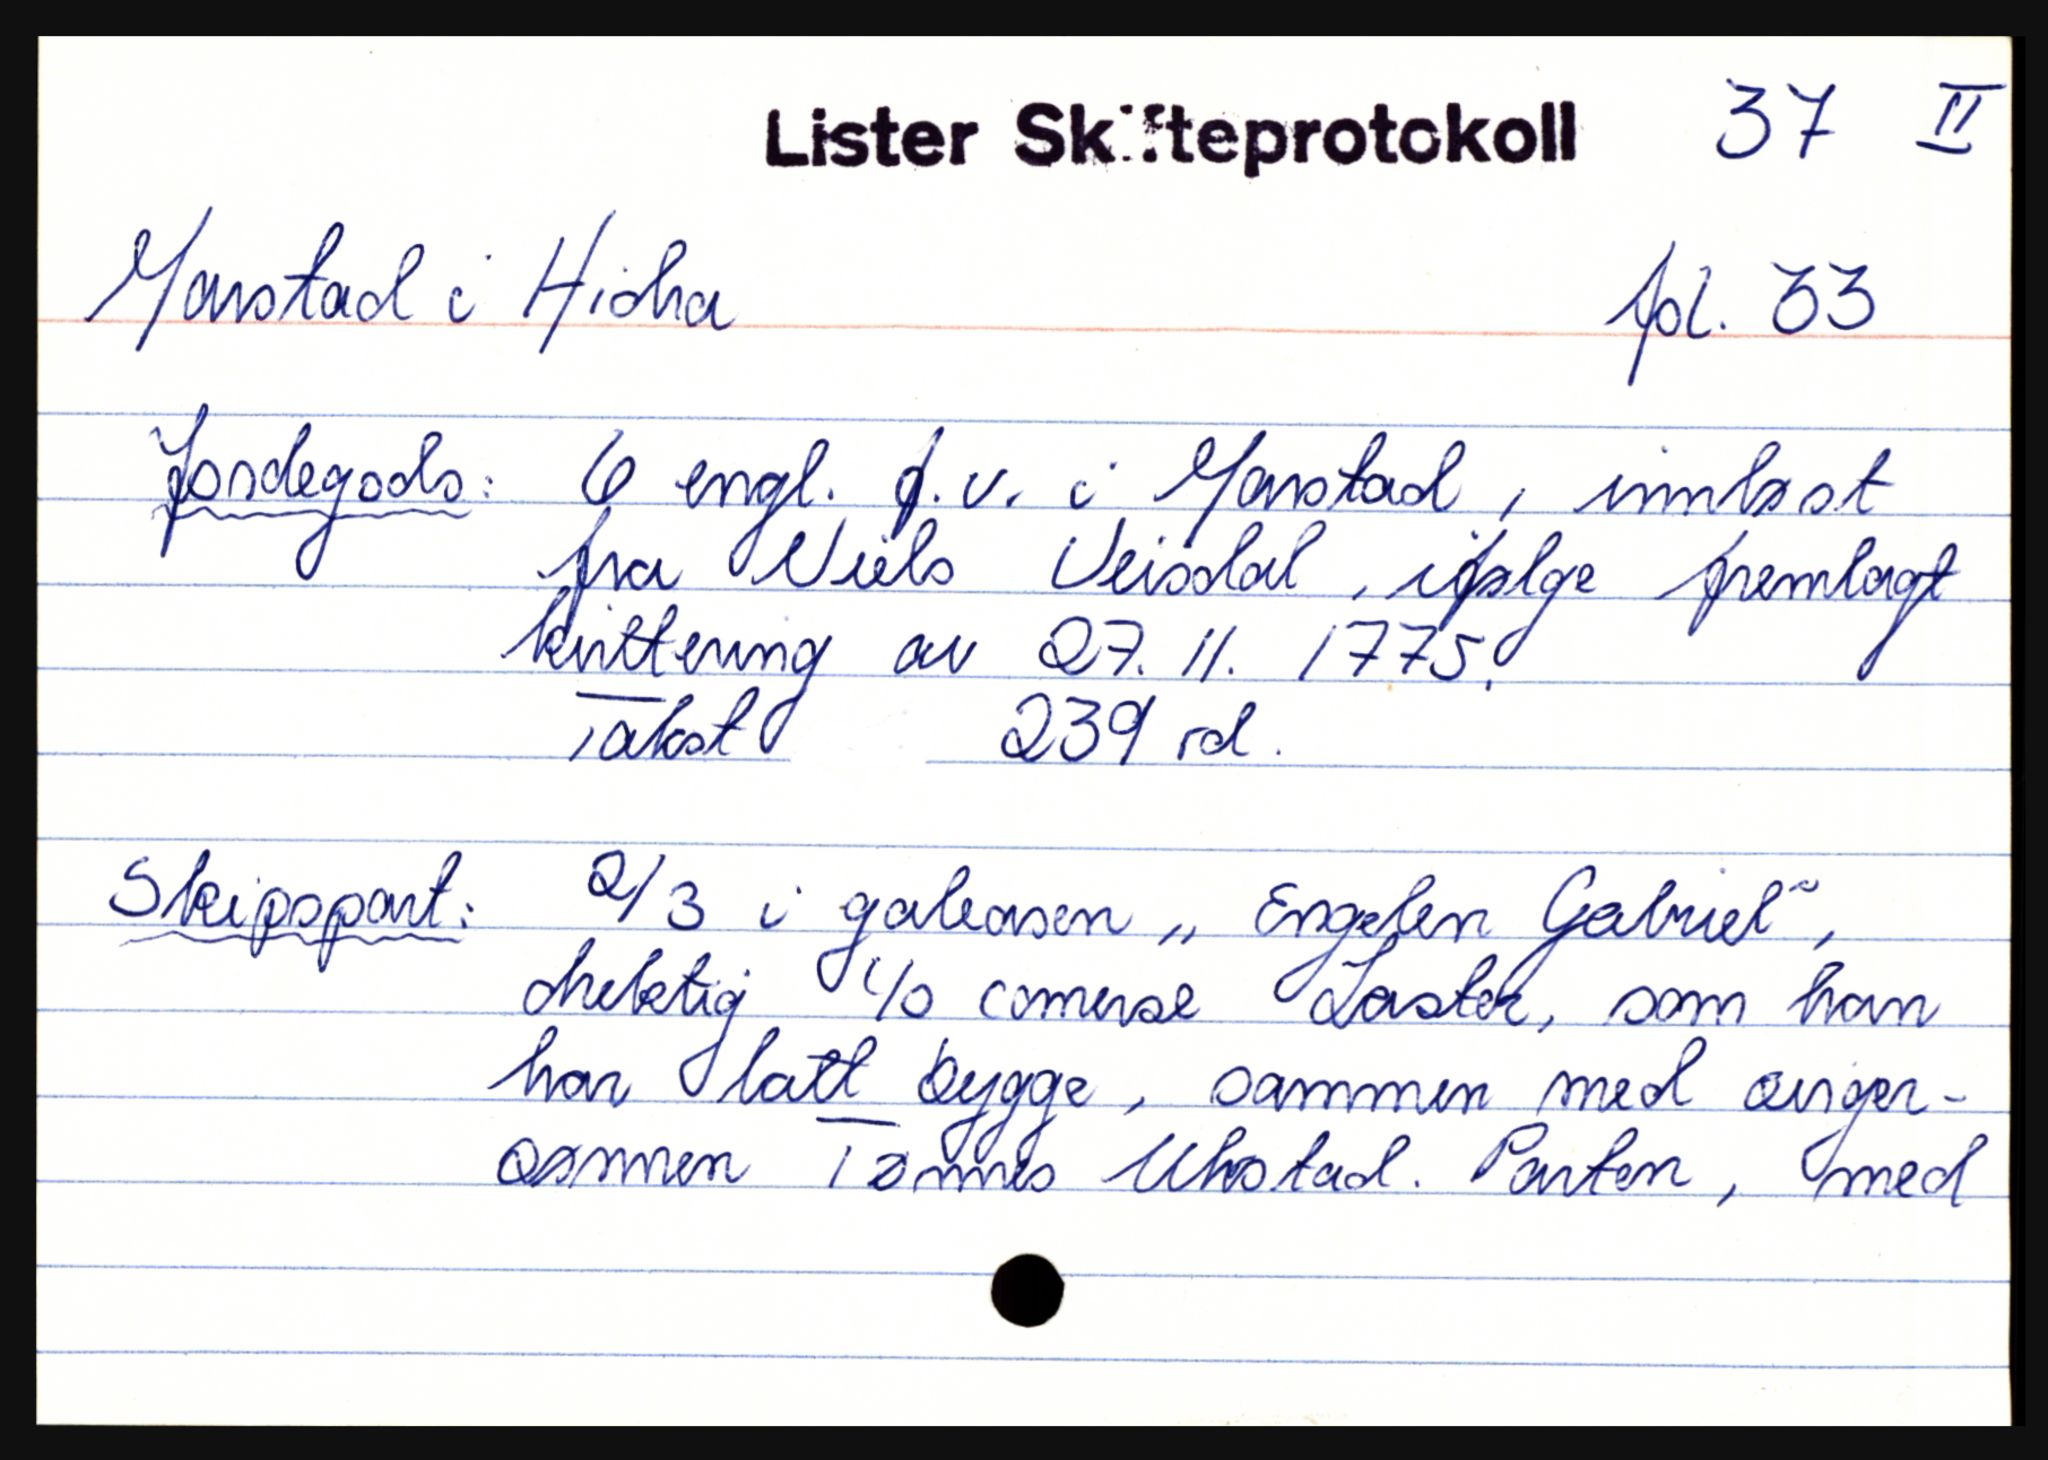 Lister Skifteprotokoll 37 II
Marstad i Hidra fol. 33
Jordegods: 6 engl. g.v. i Marstad, innløst
fra Niels Veisdal, ifølge fremlagt
kvittering av 27.11.1775.
Takst 239 rd.
Skipspart: 2/3 i galeasen „Engelen Gabriel",
drektig 4/0 comerse Laster, som han
har latt bygge, sammen med sviger-
sønnen Tønnes Urstad. Parten, med